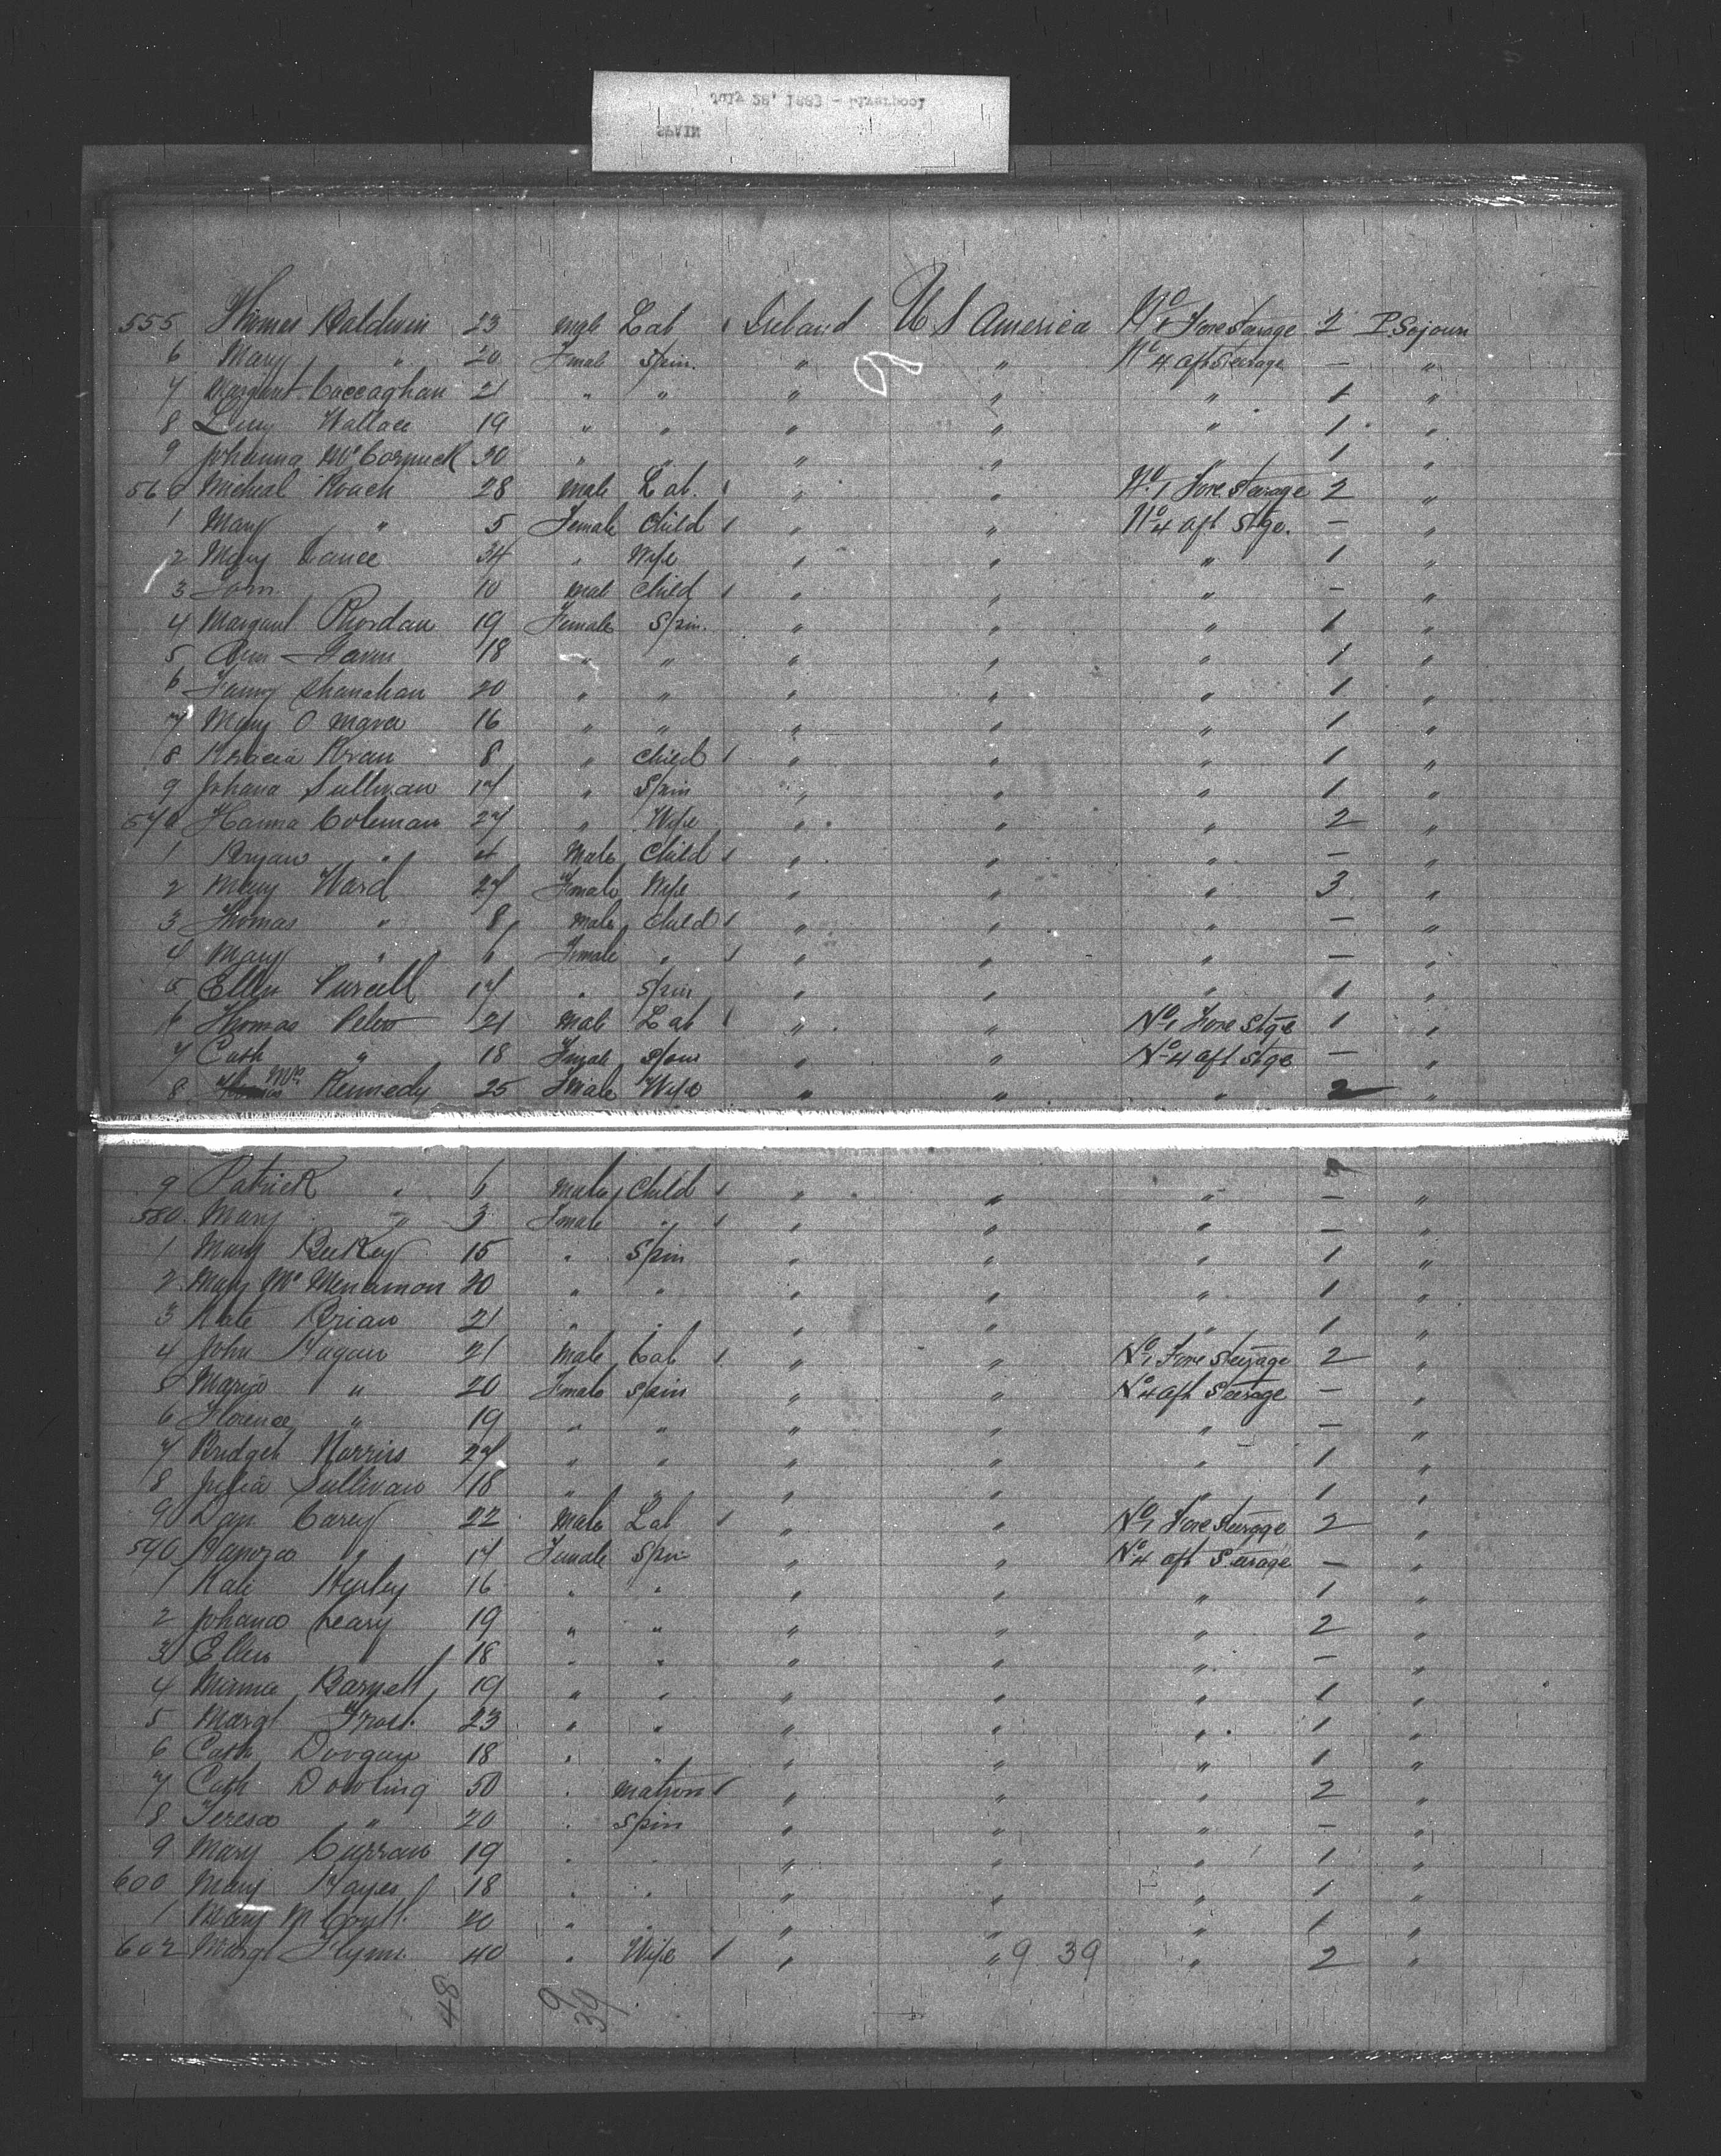 555 Thomas Baldwin 23 male Lab Ireland U S America No 1 Fore Stearage 2 P. Sojourn
6 Mary " 20 Female Spin. " " No 4 aft Stearage — "
7 Margaret 21 " " " " " 1 "
8 Wallace 19 " " " " " 1 "
9 Johanna McCormick 30 " " " " " 1 "
560 Micheal Roach 28 male Lab. " " No. 1 Fore Stearage 2 "
1 Mary " 5 Female Child " " No 4 aft Stge. — "
2 Mary 34 " Wife " " " 1 "
3 10 male Child " " " — "
4 Margaret Riordan 19 Female Spin. " " " 1 "
5 18 " " " " " 1 "
6 Fanny Shanahan 20 " " " " " 1 "
7 Mary O Mara 16 " " " " " 1 "
8 8 " Child " " " 1 "
9 Johana Sullivan 17 " Spin " " " 1 "
570 Hanna Coleman 27 " Wife " " " 2 "
1 Bryan " 4 Male Child " " " — "
2 Mary Ward 27 Female Wife " " " 3 "
3 Thomas " 8 male Child " " " — "
4 Mary " 6 Female " " " " — "
5 Ellen Purcell 17 " Spin " " " 1 "
6 Thomas 21 male Lab " " No 1 Fore Stge 1 "
7 Cath " 18 Female " " No 4 aft Stge — "
8 Mrs Kennedy 25 Female Wife " " " 2 "
9 Patrick " 6 male Child " " " — "
580 Mary " 3 Female " " " " — "
1 Mary 15 " Spin " " " 1 "
2 Mary Mc Menamon 20 " " " " " 1 "
3 Kate Brian 21 " " " " " 1 "
4 John Hagan 21 male Lab " " No 1 Fore Steerage 2 "
5 Maria " 20 Female Spin " " No 4 aft Stearage — "
6 Florence " 19 " " " " " — "
7 Bridget Norris 27 " " " " " 1 "
8 Julia Sullivan 18 " " " " " 1 "
9 Dan Carey 22 male Lab " " No 1 Fore Stearage 2 "
590 " 17 Female Spin " " No 4 aft Stearage — "
1 Kate 16 " " " " " 1 "
2 Johana Leary 19 " " " " " 2 "
3 Ellen " 18 " " " " " — "
4 Minnie Barnett 19 " " " " " 1 "
5 Margt Frost 23 " " " " " 1 "
6 Cath 18 " " " " " 1 "
7 Cath Dowling 50 " matron " " " 2 "
8 Teresa " 20 " Spin " " " — "
9 Mary Curran 19 " " " " " 1 "
600 Mary Hayes 18 " " " " " 1 "
1 Mary 20 " " " " " 1 "
602 Margt Flynn 40 " Wife " " 9 39 " 2 "
48 9 39